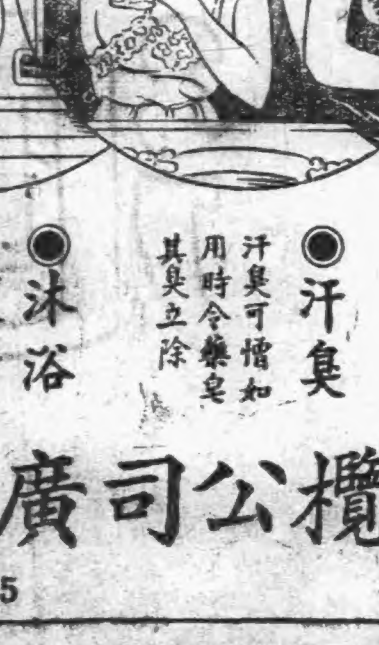 汗臭
汗臭可憎如
用時令藥皂
其臭立除
沐浴
欖公司廣
5